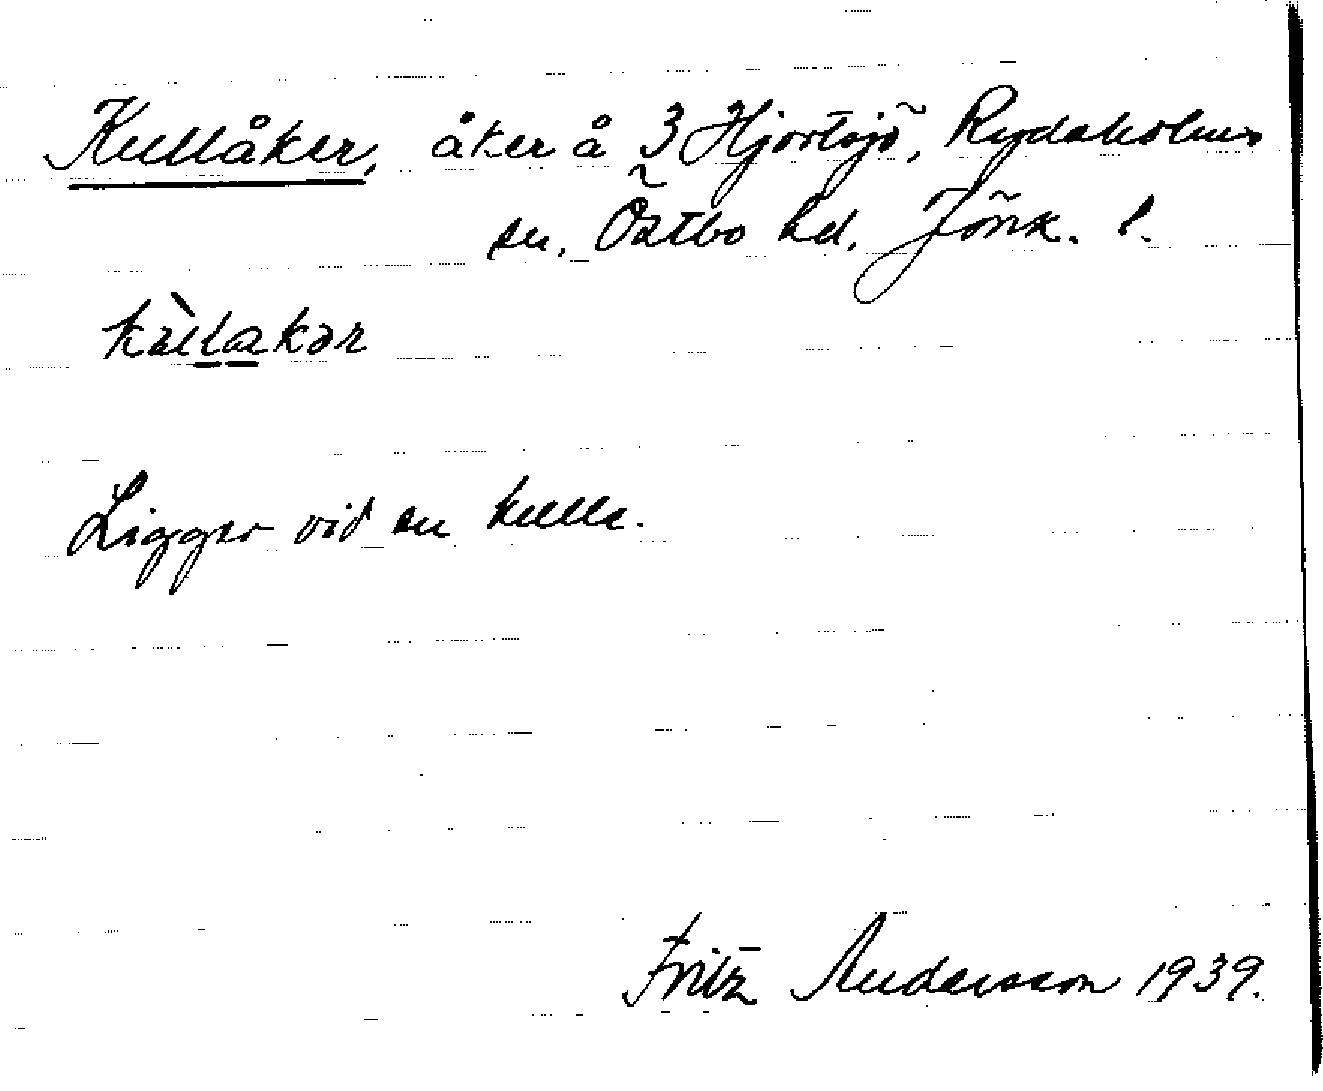 Kullåker, åker å 3 Hjortsjö, Rydaholms
sn, Östbo hd, Jönk. l.
kàllakər
Ligger vid en kulle.
Fritz Andersson 1939.